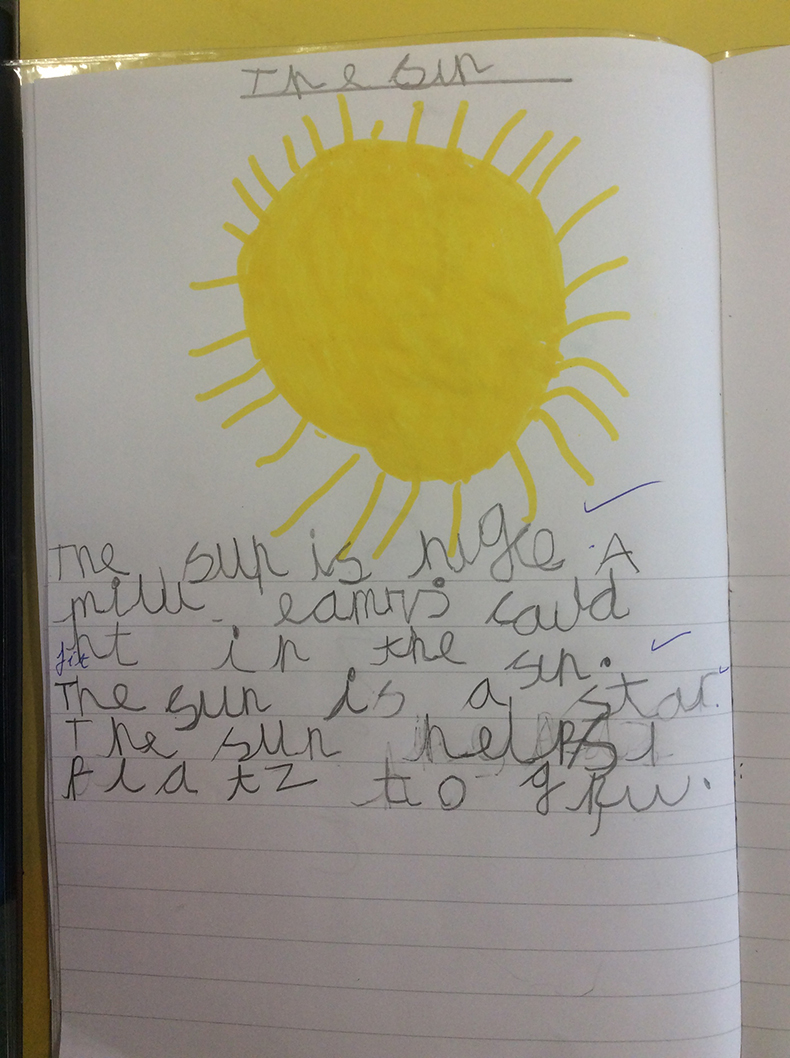 The sun
The sun is hige. A
milu earths could
fit
ht in the sun.
The sun is a star.
The sun helps
platz to grw.